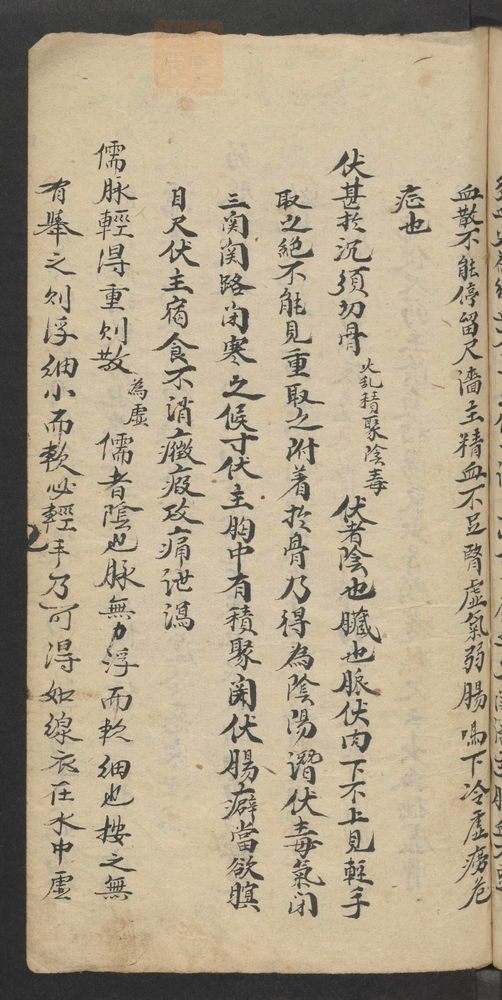 血散不能停留尺濇主精血不足腎虛氣弱腸鳴下冷虛瘍危
症也
伏甚扵沉須切骨 火乱積聚陰毒 伏者陰也臟也脈伏肉下不上見輕手
取之絕不能見重取之附着扵骨乃得為陰陽潛伏毒氣闭
三関関路闭寒之候寸伏主胸中有積聚関伏腸癖當欲瞑
目尺伏主宿食不消癥瘕攻痛泄瀉
儒脉輕得重则散 為虛 儒者陰也脉無力浮而軟細也按之無
有舉之则浮細小而軟必輕手乃可得如線衣在水中虛